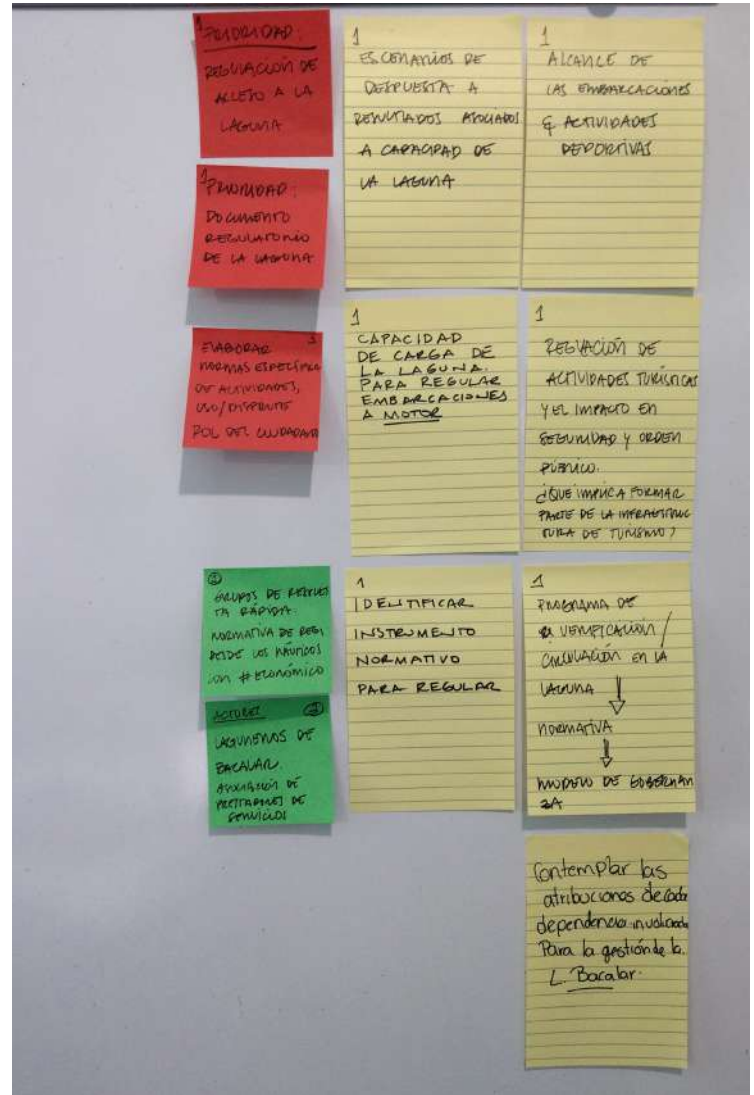 1
PRIORIDAD:
REGULACIÓN DE
ACCESO A LA
LAGUNA
1
PRIORIDAD:
DOCUMENTO
REGULATORIO
DE LA LAGUNA
3
ELABORAR
NORMAS ESPECÍFICA
DE ACTIVIDADES,
USO/DISFRUTE
ROL DEL CIUDADANO
2
GRUPOS DE RESPUES
TA RÁPIDA.
NORMATIVA DE
DESDE LOS NÁUTICOS
CON # ECONÓMICO
ACTORES 2
LAGUNEROS DE
BACALAR.
ASOCIACIÓN DE
PRESTADORES DE
SERVICIOS
1
ESCENARIOS DE
RESPUESTA A
RESULTADOS ASOCIADOS
A CAPACIDAD DE
LA LAGUNA
1
CAPACIDAD
DE CARGA DE
LA LAGUNA.
PARA REGULAR
EMBARCACIONES
A MOTOR
1
IDENTIFICAR
INSTRUMENTO
NORMATIVO
PARA REGULAR
1
ALCANCE DE
LAS EMBARCACIONES
& ACTIVIDADES
DEPORTIVAS
1
REGULACIÓN DE
ACTIVIDADES TURÍSTICAS
Y EL IMPACTO EN
SEGURIDAD Y ORDEN
PÚBLICO.
¿QUE IMPLICA FORMAR
PARTE DE LA INFRAESTRUC
TURA DE TURISMO?
1
PROGRAMA DE
VERIFICACIÓN /
CIRCULACIÓN EN LA
LAGUNA
NORMATIVA
MODELO DE GOBERNAN
ZA
Contemplar las
atribuciones de cada
dependencia involucrada
Para la gestión de la
L. Bacalar.